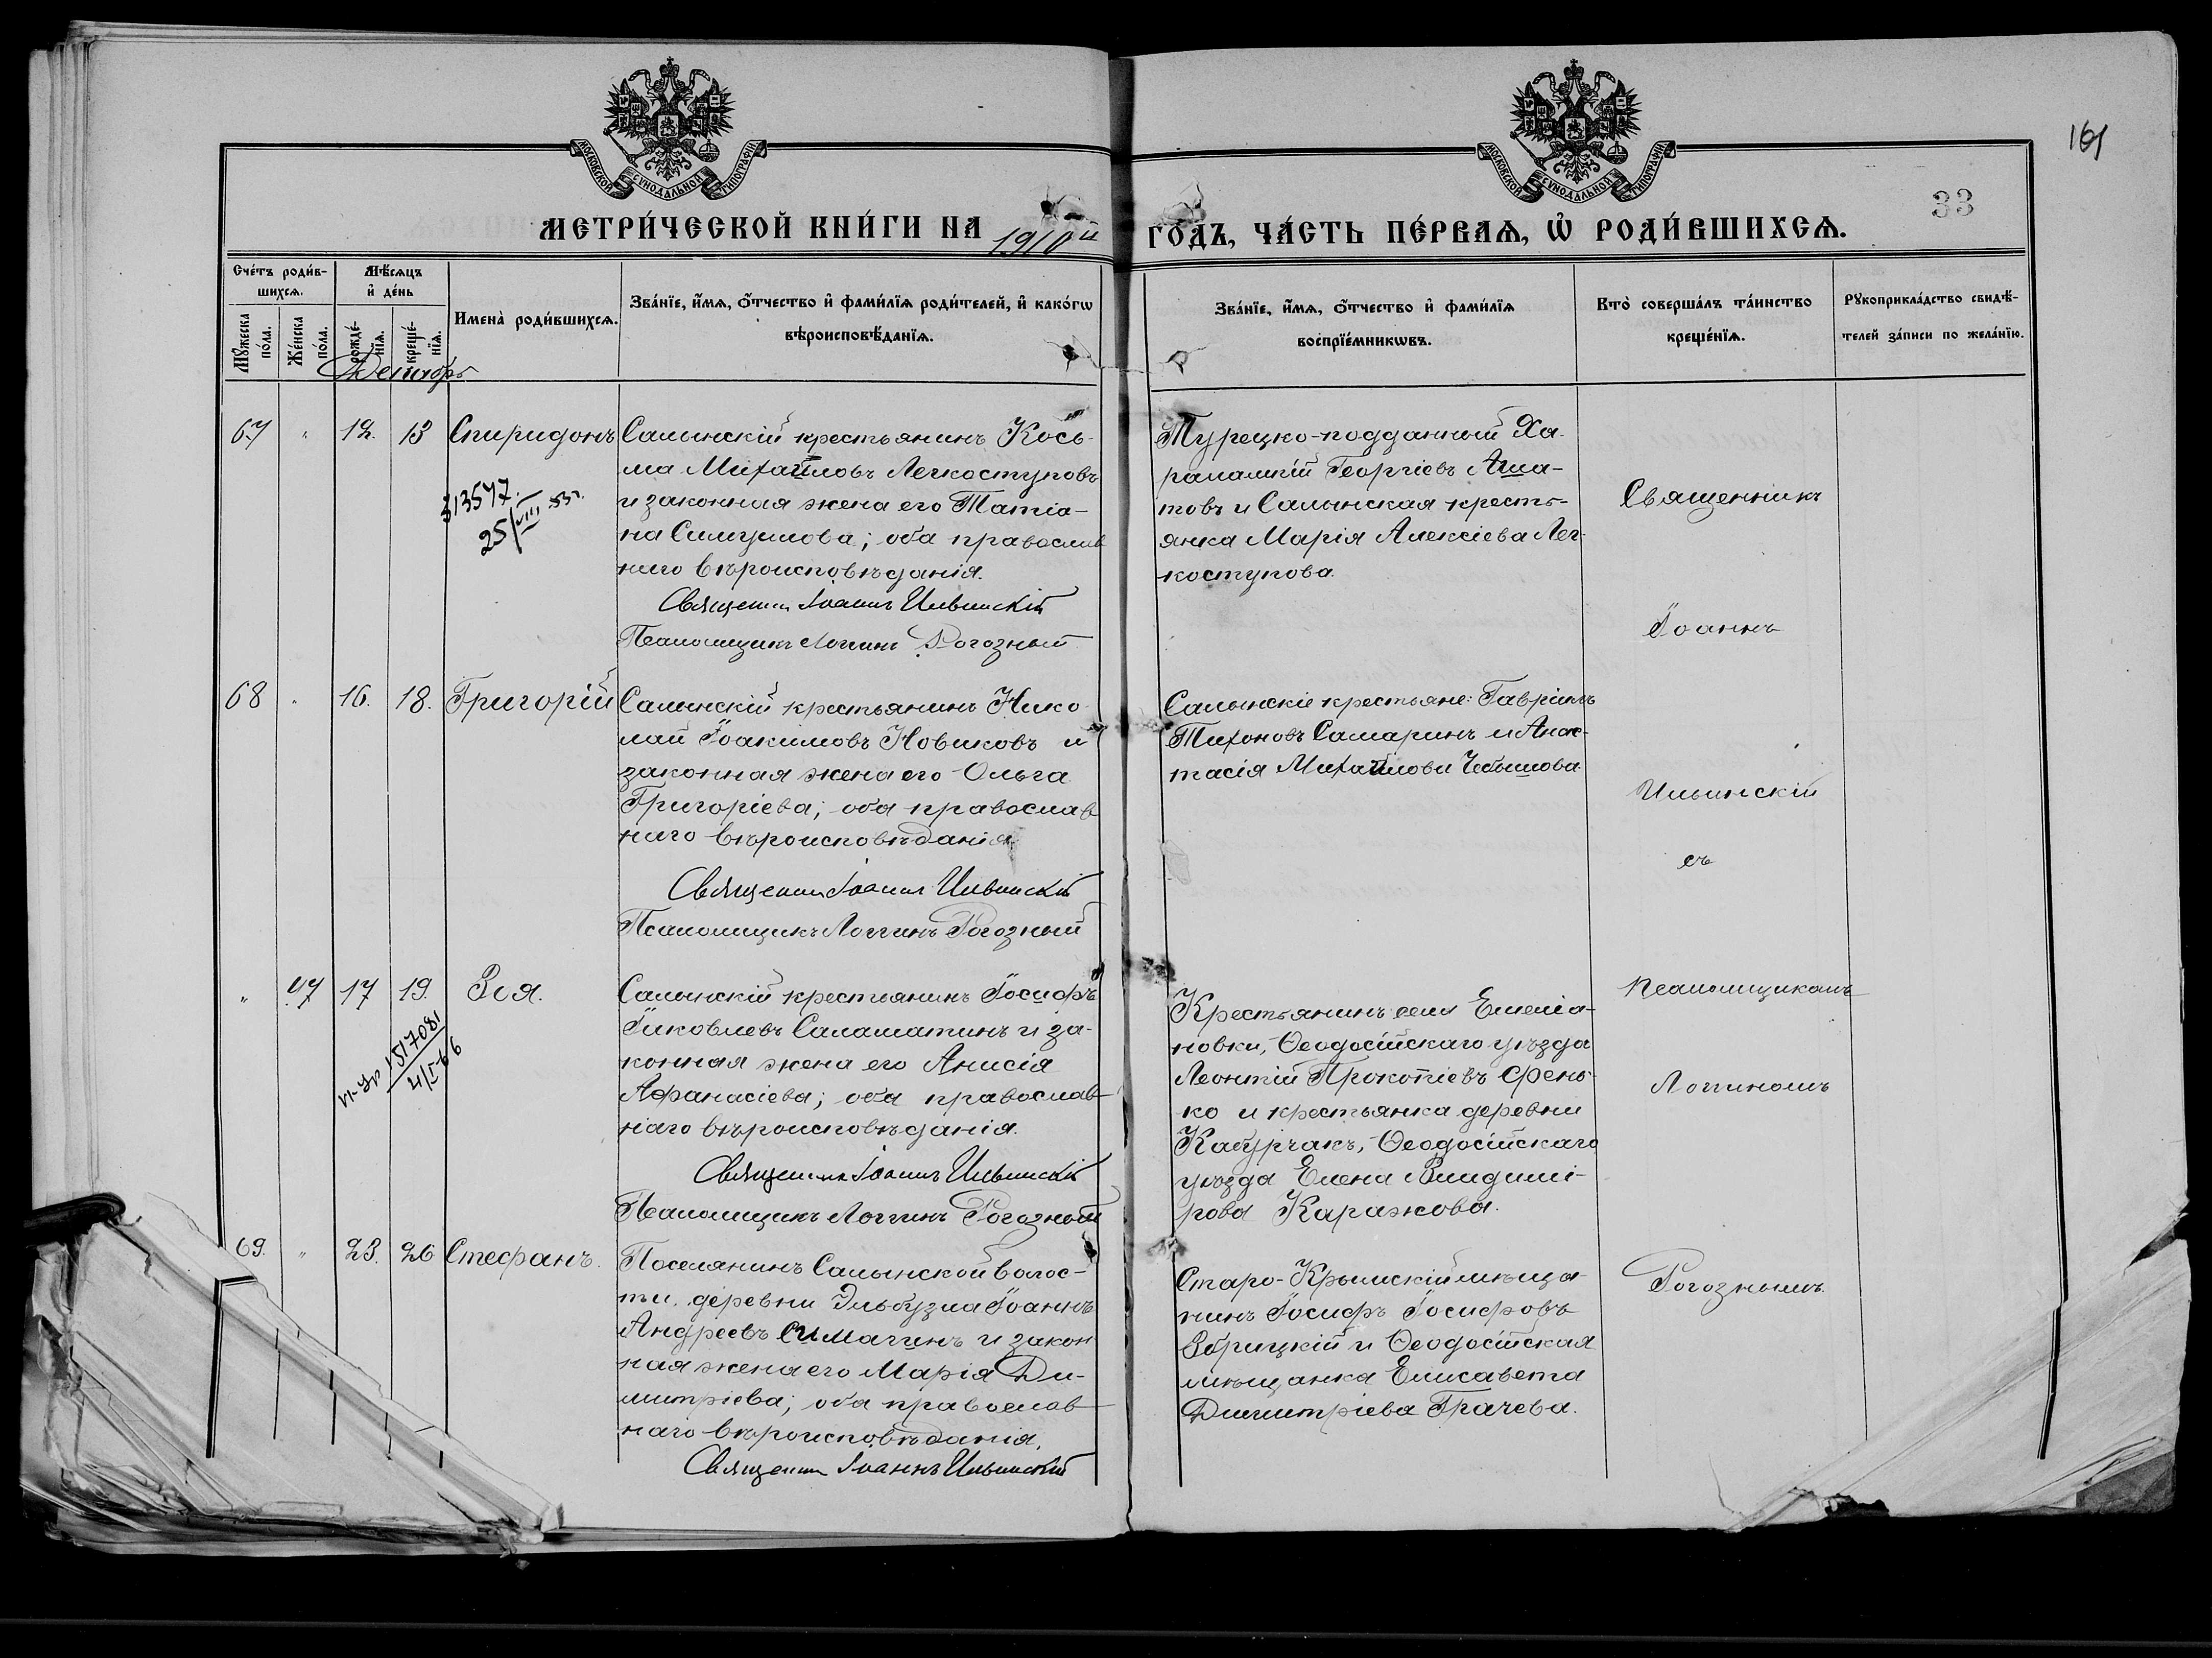 161
33
МОСКОВСКОЙ СУНОДАЛЬНОЙ ТИПОГРАФІИ
МОСКОВСКОЙ СУНОДАЛЬНОЙ ТИПОГРАФІИ
МЕТРИ́ЧЕСКОЙ КНИ́ГИ НА 1910й ГО́ДЪ, ЧА́СТЬ ПЕ́РВАѦ, Ѡ҆ РОДИ́ВШИХСѦ.
Сче́тъ роди́в-
шихсѧ.
Мѣ́сѧцъ
и҆ де́нь
Мꙋ́жеска по́ла.
Же́нска по́ла.
рожде́-
нїѧ.
креще́-
нїѧ.
Имена̀ роди́вшихсѧ.
Зва́нїе, и҆́мѧ, ѻ҆́тчество и҆ фами́лїѧ роди́телей, и҆ како́гѡ
вѣроисповѣ́данїѧ.
Зва́нїе, и҆́мѧ, ѻ҆́тчество и҆ фами́лїѧ
воспрїе́мникѡвъ.
Кто̀ соверша́лъ та́инство
креще́нїѧ.
Рꙋкоприкла́дство свидѣ́-
телей за́писи по жела́нїю.
Декабрь
67 " 12. 13 Спиридонъ
313547.
25/VIII 53г.
Салынскій крестьянинъ Кось-
ма Михайловъ Легкоступовъ
и законная жена его Татіа-
на Симеонова; оба православ
наго вѣроисповѣданія.
Священн Іоаннъ Ильинскій
Псаломщикъ Логгинъ Рогозный
Турецко-подданный Ха-
рамампій Георгіевъ Ама-
товъ и Салынская кресть-
янка Марія Алексіева Лег-
коступова.
Священникъ
Іоаннъ
Ильинскій
съ
псаломщикомъ
Логгиномъ
Рогознымъ.
68 " 16. 18. Григорій
Салынскій крестьянинъ Нико
лай Іоакимовъ Новиковъ и
законная жена его Ольга
Григоріева; оба православ
наго вѣроисповѣданія.
Священн Іоаннъ Ильинскій
Псаломщикъ Логгинъ Рогозный
Салынскіе крестьяне: Гавріилъ
Тихоновъ Самаринъ и Анас-
тасія Михайлова Чебышова
" 47 17 19. Зоя.
1517081
4/V-66
Салынскій крестьянинъ Іосифъ
Іаковлевъ Саламатинъ и за-
конная жена его Анисія
Афанасіева; оба православ-
наго вѣроисповѣданія.
Священникъ Іоаннъ Ильинскій
Псаломщикъ Логгинъ Рогозный
Крестьянинъ села Емеліа-
новки, Ѳеодосійскаго уѣзда
Леонтій Прокопіевъ Фень-
ко и крестьянка деревни
Кабурчакъ, Ѳеодосійскаго
уѣзда Елена Владимі-
рова Каражова.
69. " 23. 26 Стефанъ.
Поселянинъ Салынской волос-
ти, деревни Эльбузла Іоаннъ
Андреевъ Симагинъ и закон
ная жена его Марія Ди-
митріева; оба православ-
наго вѣроисповѣданія.
Священн Іоаннъ Ильинскій
Старо-Крымскій мѣща-
нинъ Іосифъ Іосифовъ
Збрицкій и Ѳеодосійская
мѣщанка Елисавета
Димитріева Грачева.